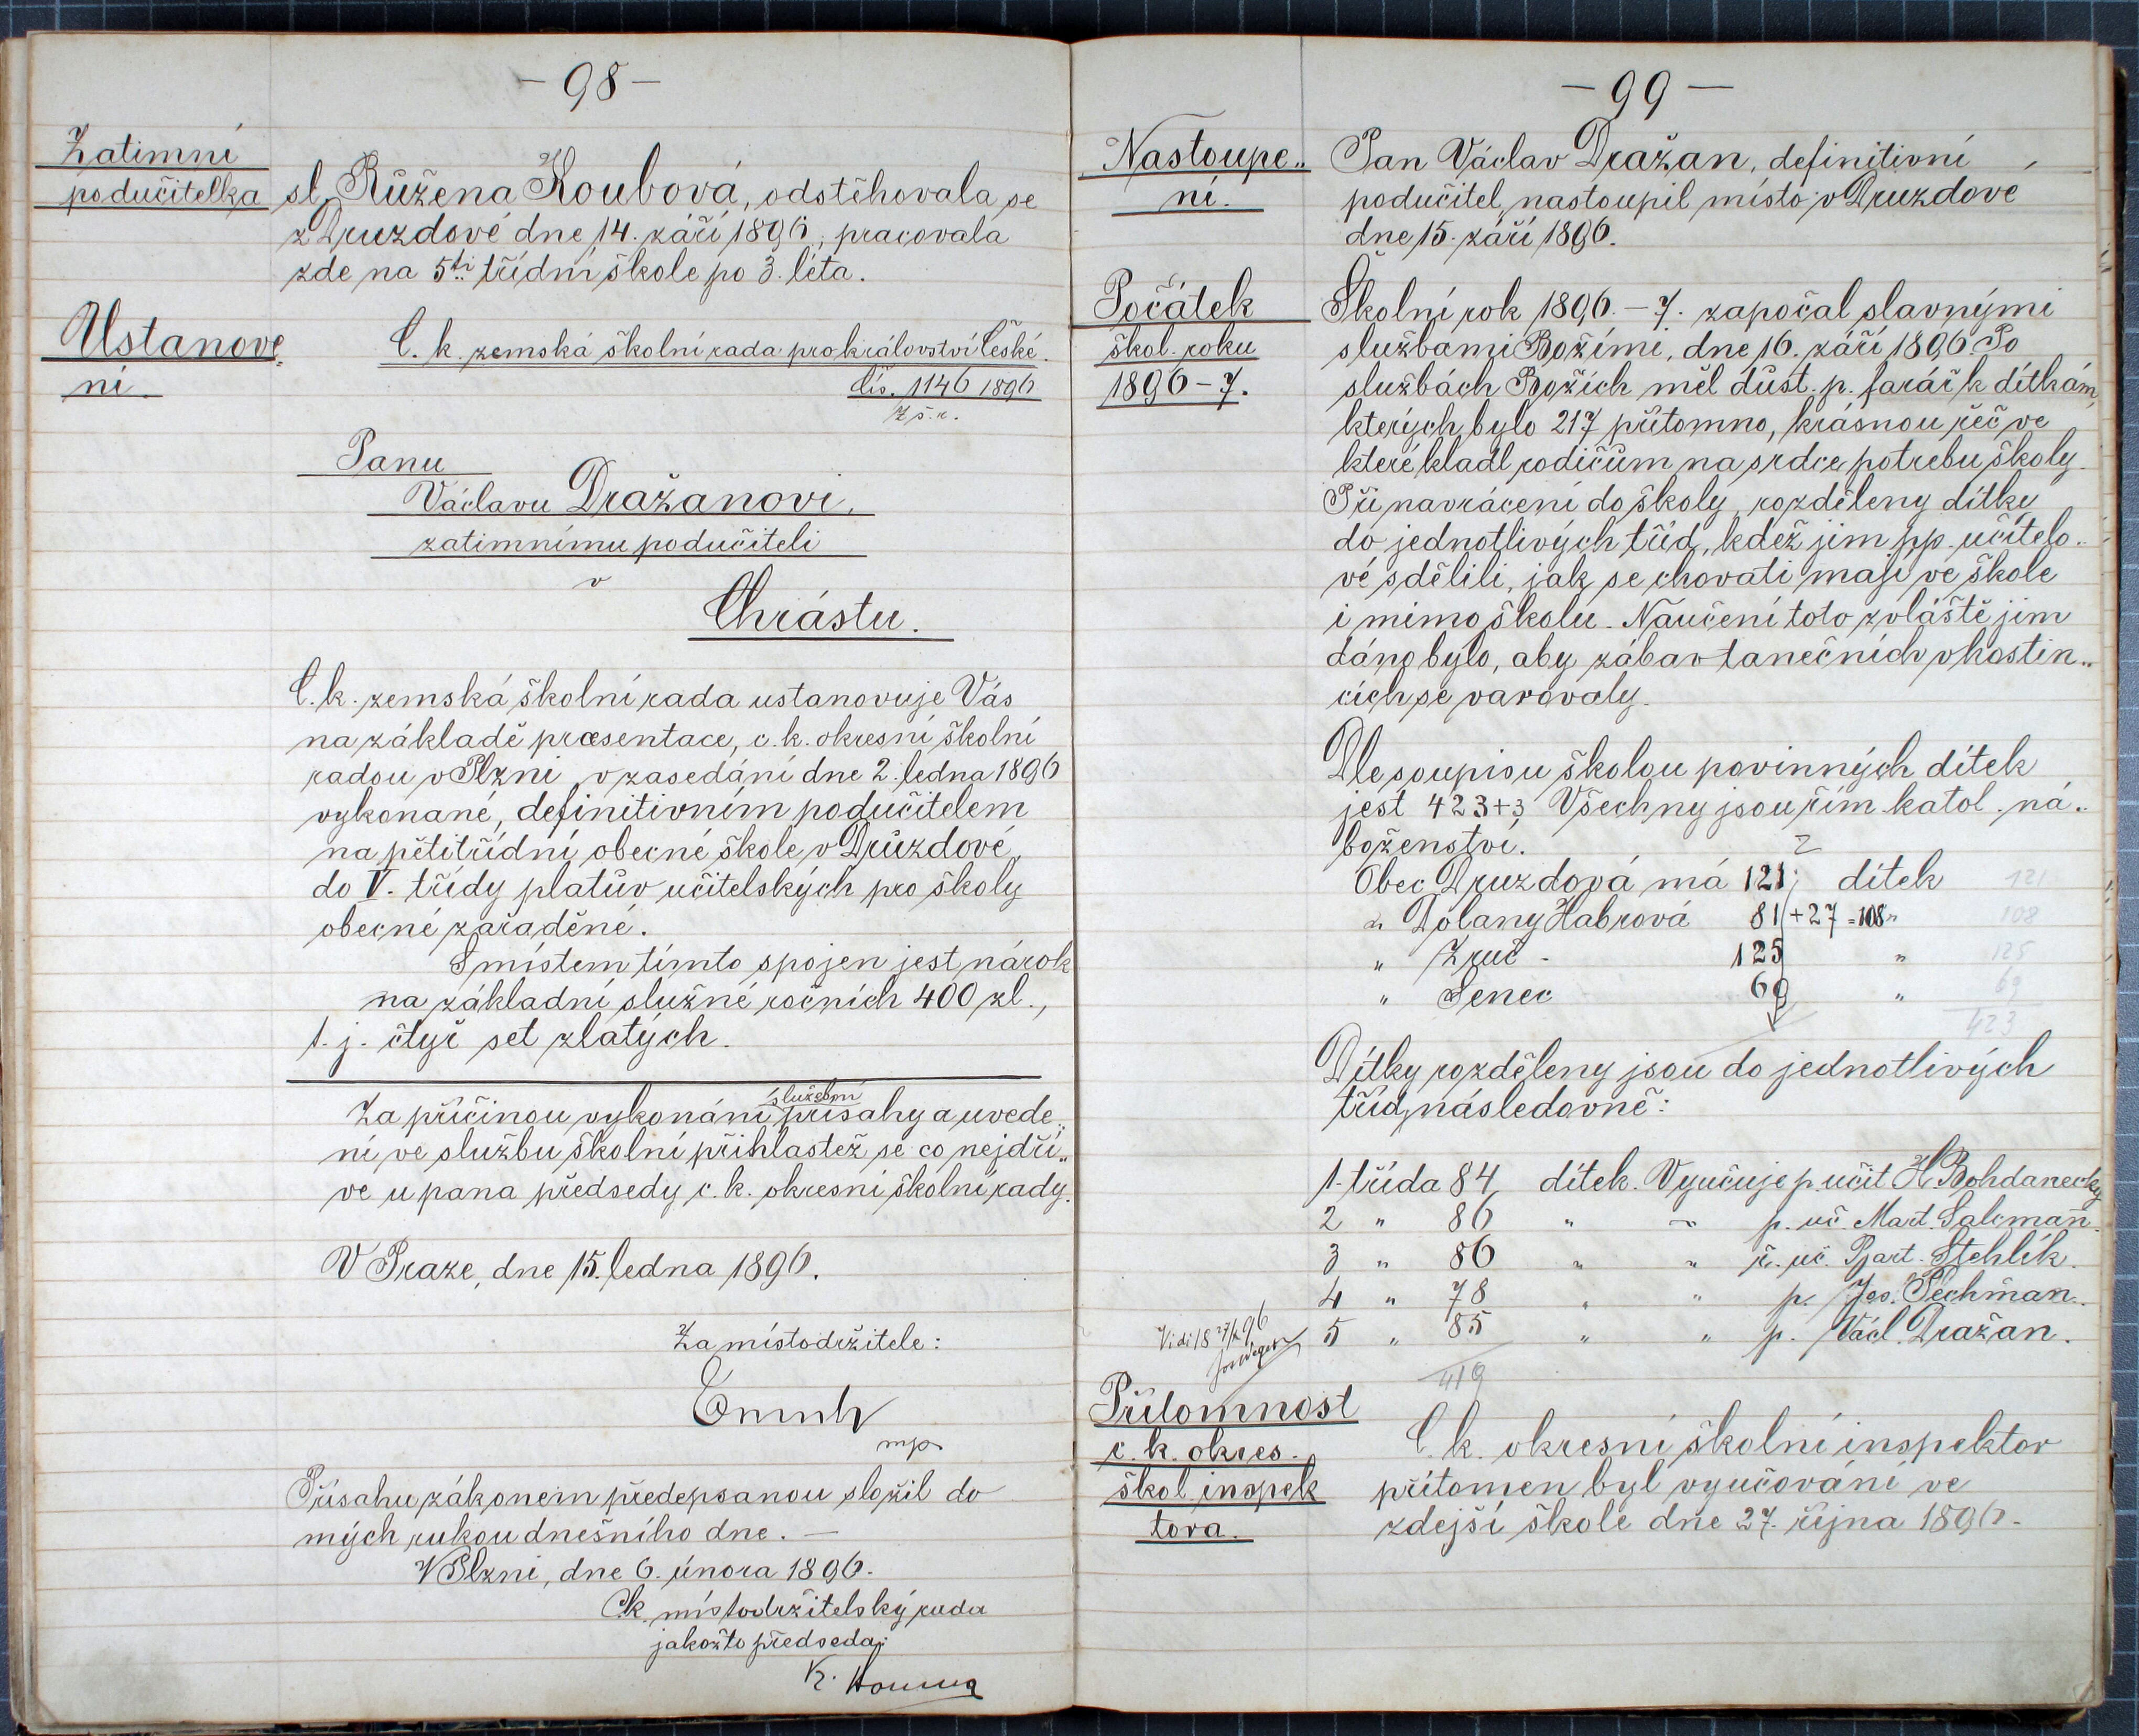 - 98 -
Zatimní
podučitelka
sl. Růžena Koubová, odstěhovala se
z Druzdové dne 14. září 1896, pracovala
zde na 5ti třídní škole po 3. léta.
Ustanove„
ní.
C. k. zemská školní rada pro království České.
čís. 1146 1896
z š. r.
Panu
Václavu Dražanovi,
zatimnímu podučiteli
v
Chrástu.
C. k. zemská školní rada ustanovuje Vás
na základě præsentace, c. k. okresní školní
radou v Plzni v zasedání dne 2. ledna 1896
vykonané, definitivním podučitelem
na pětitřídní obecné škole v Drůzdové,
do V. třídy platův učitelských pro školy
obecné zařaděné.
S místem tímto spojen jest nárok
na základní služné ročních 400 zl.,
t. j. čtyř set zlatých.
služební
Za příčinou vykonání přísahy a uvede„
ní ve službu školní přihlastež se co nejdří„
ve u pana předsedy c. k. okresní školní rady.
V Praze, dne 15. ledna 1896.
Za místodržitele:
mp
Přísahu zákonem předepsanou složil do
mých rukou dnešního dne. —
V Plzni, dne 6. února 1896.
C.k. místodržitelský rada
jakožto předseda:
- 99 -
Nastoupe„
ní.
Pan Václav Dražan, definitivní
podučitel, nastoupil místo v Druzdové
dne 15. září 1896.
Počátek
škol. roku
1896-7.
Školní rok 1896.-7. započal slavnými
službami Božími, dne 16. září 1896. Po
službách Božích měl důst. p. farář k dítkám,
kterých bylo 217 přítomno, krásnou řeč ve
které kladl rodičům na srdce potrebu školy.
Při navrácení do školy, rozděleny dítky
do jednotlivých tříd, kdež jim pp. učitelo„
vé sdělili, jak se chovati mají ve škole
i mimo školu. Naučení toto zvláště jim
dáno bylo, aby zábav tanečních v hostin„
cích se varovaly.
Dle soupisu školou povinných dítek
jest 423+3 Všechny jsou řím. katol. ná„
boženství.
Obec Druzdová má 121 dítek 121
„ Dolany Habrová 81 + 27 = 108 „ 108
„ Zruč - 125 „ 125
„ Senec 69 „ 69
423
Dítky rozděleny jsou do jednotlivých
tříd následovně:
1. třída 84 dítek. Vyučuje p. učit H. Bohdanecký
2 „ 86 „ „ p. uč. Mart. Salcman.
3 „ 86 „ „ ř. uč. Bart. Stehlík.
4 „ 78 „ „ p. Jos. Pechman.
5 „ 85 „ „ p. Václ. Dražan.
419
Vidi 18 27/X 96
Přítomnost
c. k. okres.
škol. inspek
tora.
C. k. okresní školní inspektor
přítomen byl vyučování ve
zdejší škole dne 27. října 1896.